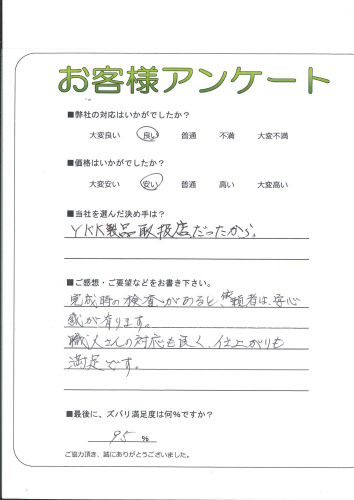 お客様アンケート
■弊社の対応はいかがでしたか？
大変良い 良い 普通 不満 大変不満
■価格はいかがでしたか？
大変安い 安い 普通 高い 大変高い
■当社を選んだ決め手は？
YKK製品取扱店だったから。
■ご感想・ご要望などをお書き下さい。
完成時の検査があると、依頼者は、安心
感が有ります。
職人さんの対応も良く、仕上がりも
満足です。
■最後に、ズバリ満足度は何％ですか？
95 %
ご協力頂き、誠にありがとうございました。